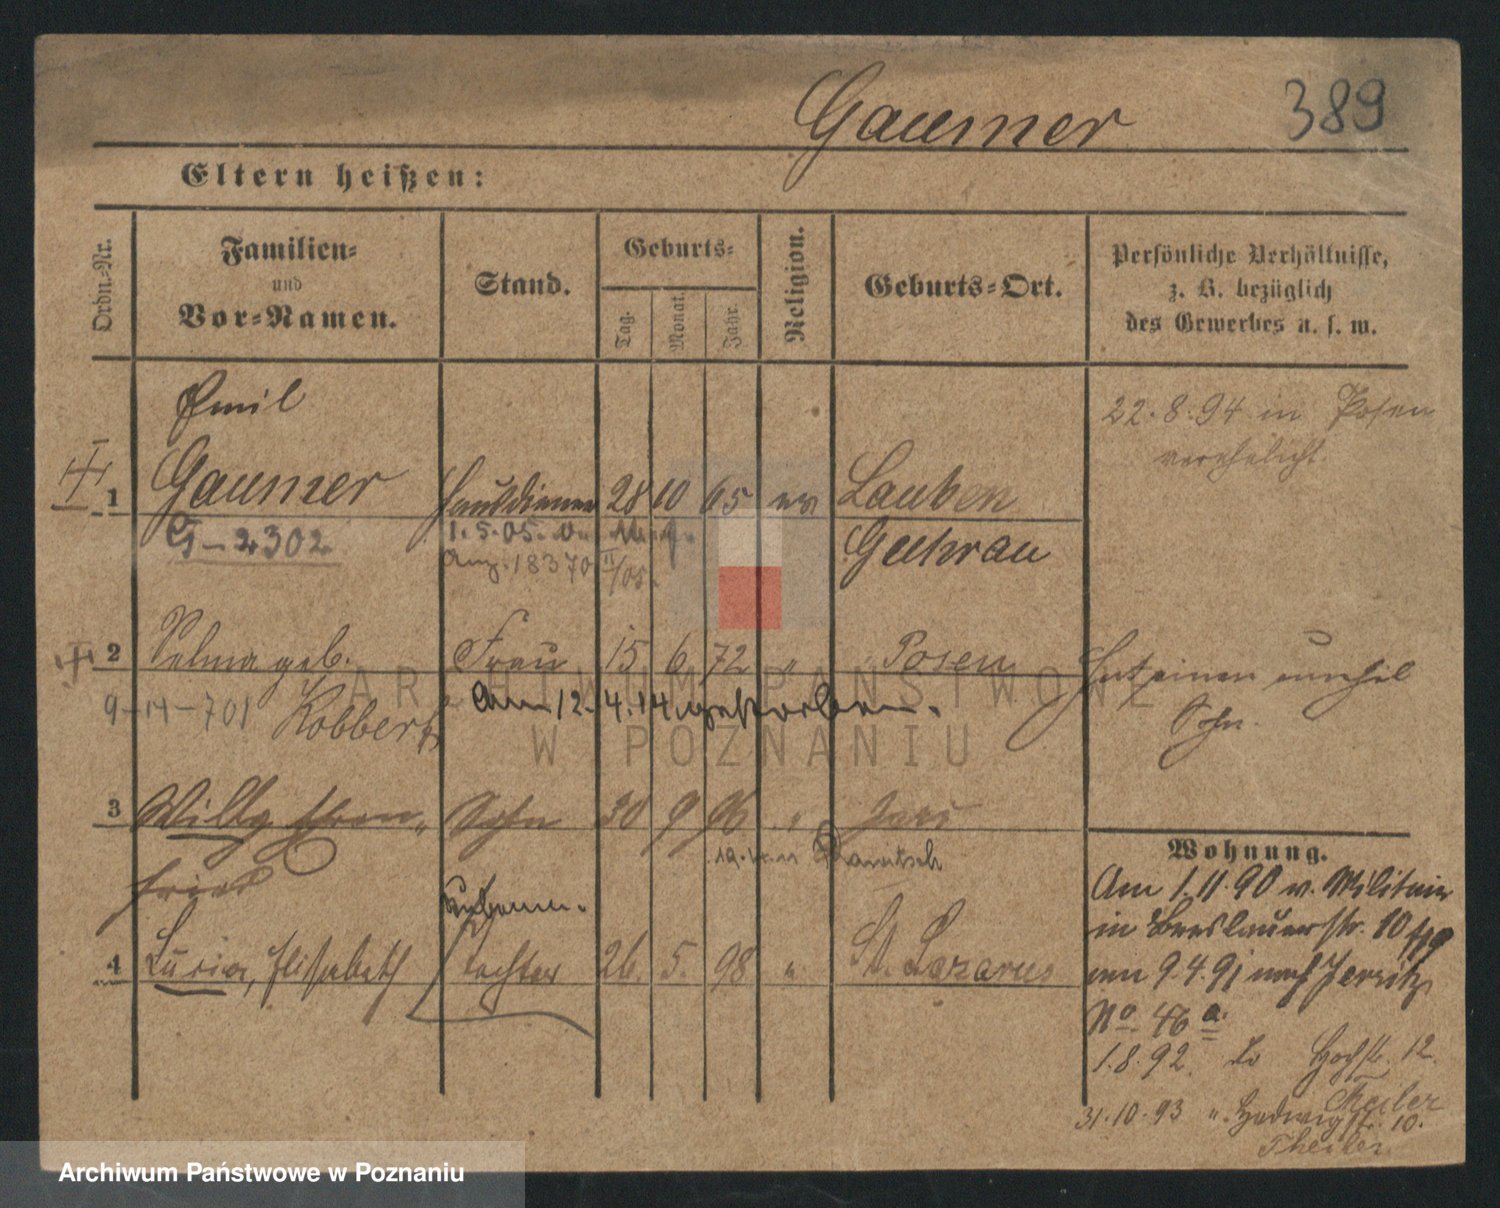 Gaumer 389
Eltern heißen:
Ordn.-Nr. Familien- und Vor-Namen. Stand. Geburts- Tag. Monat. Jahr. Religion. Geburts-Ort. Persönliche Verhältnisse, z. B. bezüglich des Gewerbes u. s. w.
Emil
22.8.94 in Posen
verehelicht
1 Gaumer Hausdiener 28 10 65 ev Lauben
G-2302 1.5.05.
Guhrau
Anz. 18370 II/05.
2 Selma geb. Frau 15 6 72 " Posen
Hat einen unehel
9-14-701 Kobbert Am 12.4.14 gestorben.
Sohn.
3 Willy Ehren- Sohn 30 9 96 " Jers
fried
Wohnung.
Am 1.11.90 v. Militair
in Breslauerstr. 10
4 Lucia, Elisabeth Tochter 26. 5. 98 " St. Lazarus
am 9.4.91 nach Jersitz
No. 46 a.
1.8.92. Hochstr. 12.
Theiler
31.10.93 " Hedwigstr. 10.
Theiler
ARCHIWUM PAŃSTWOWE
W POZNANIU
Archiwum Państwowe w Poznaniu